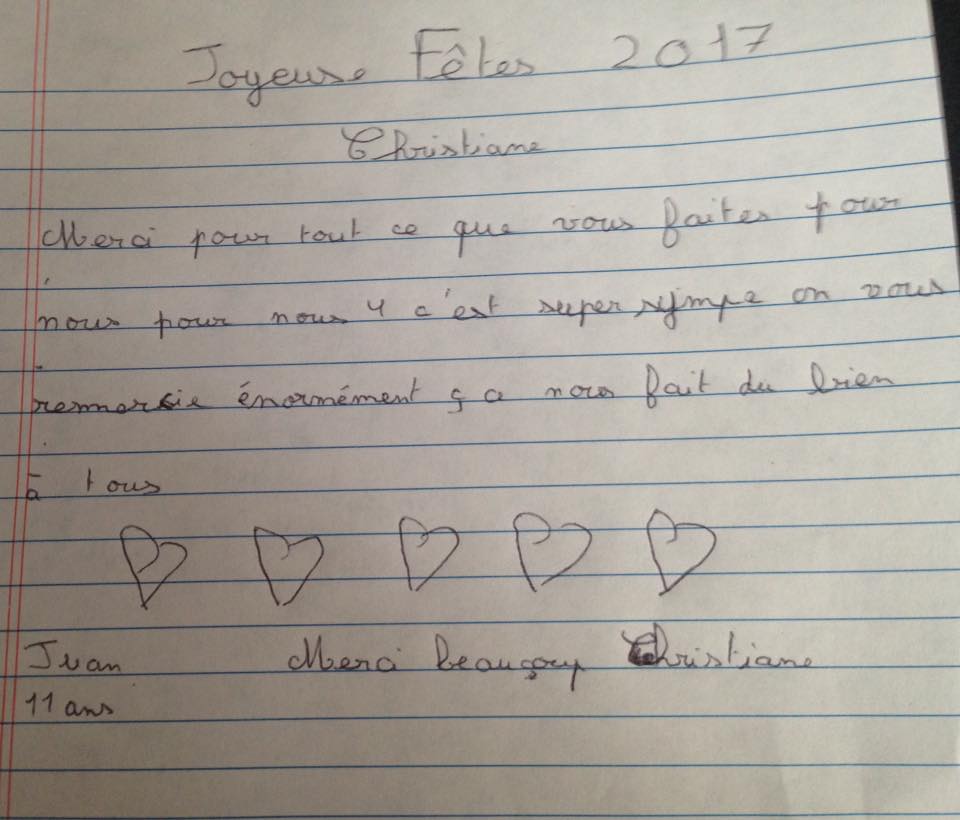 Joyeuse Fêtes 2017
Christiane
Merci pour tout ce que vous faites pour
nous pour nous 4 c'est super sympa on vous
remmersie énormément ça nous fait du bien
à tous
Juan Merci beauçoup Christiane
11 ans